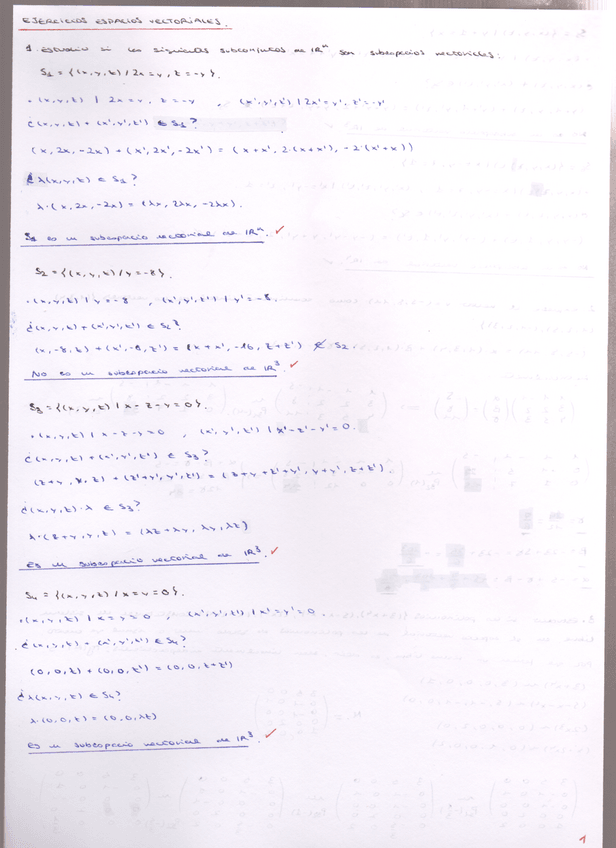 EJERCICIOS ESPACIOS VECTORIALES.
1. Estudio si los siguientes subconjuntos de IRⁿ son subespacios vectoriales:
S₁ = {(x,y,z) / 2x=y, z=-y}.
· (x,y,z) | 2x=y, z=-y , (x',y',z') | 2x'=y', z'=-y'
¿(x,y,z) + (x',y',z') ∈ S₁?
(x, 2x, -2x) + (x', 2x', -2x') = (x+x', 2·(x+x'), -2·(x'+x))
¿λ(x,y,z) ∈ S₁?
λ·(x, 2x, -2x) = (λx, 2λx, -2λx).
S₁ es un subespacio vectorial de IRⁿ. ✓
S₂ = {(x,y,z) / y=-8}.
· (x,y,z) | y=-8 , (x',y',z') | y'=-8.
¿(x,y,z) + (x',y',z') ∈ S₂?
(x,-8,z) + (x',-8,z') = (x+x', -16, z+z') ∉ S₂
No es un subespacio vectorial de IR³. ✓
S₃ = {(x,y,z) | x-z-y=0}.
· (x,y,z) | x-z-y=0 , (x',y',z') | x'-z'-y'=0.
¿(x,y,z) + (x',y',z') ∈ S₃?
(z+y, y, z) + (z'+y', y', z') = (z+y+z'+y', y+y', z+z')
¿(x,y,z)·λ ∈ S₃?
λ·(z+y, y, z) = (λz+λy, λy, λz)
Es un subespacio vectorial de IR³. ✓
S₄ = {(x,y,z) / x=y=0}.
· (x,y,z) | x=y=0 , (x',y',z') | x'=y'=0.
¿(x,y,z) + (x',y',z') ∈ S₄?
(0,0,z) + (0,0,z') = (0,0,z+z')
¿λ(x,y,z) ∈ S₄?
λ·(0,0,z) = (0,0,λz)
Es un subespacio vectorial de IR³. ✓
1